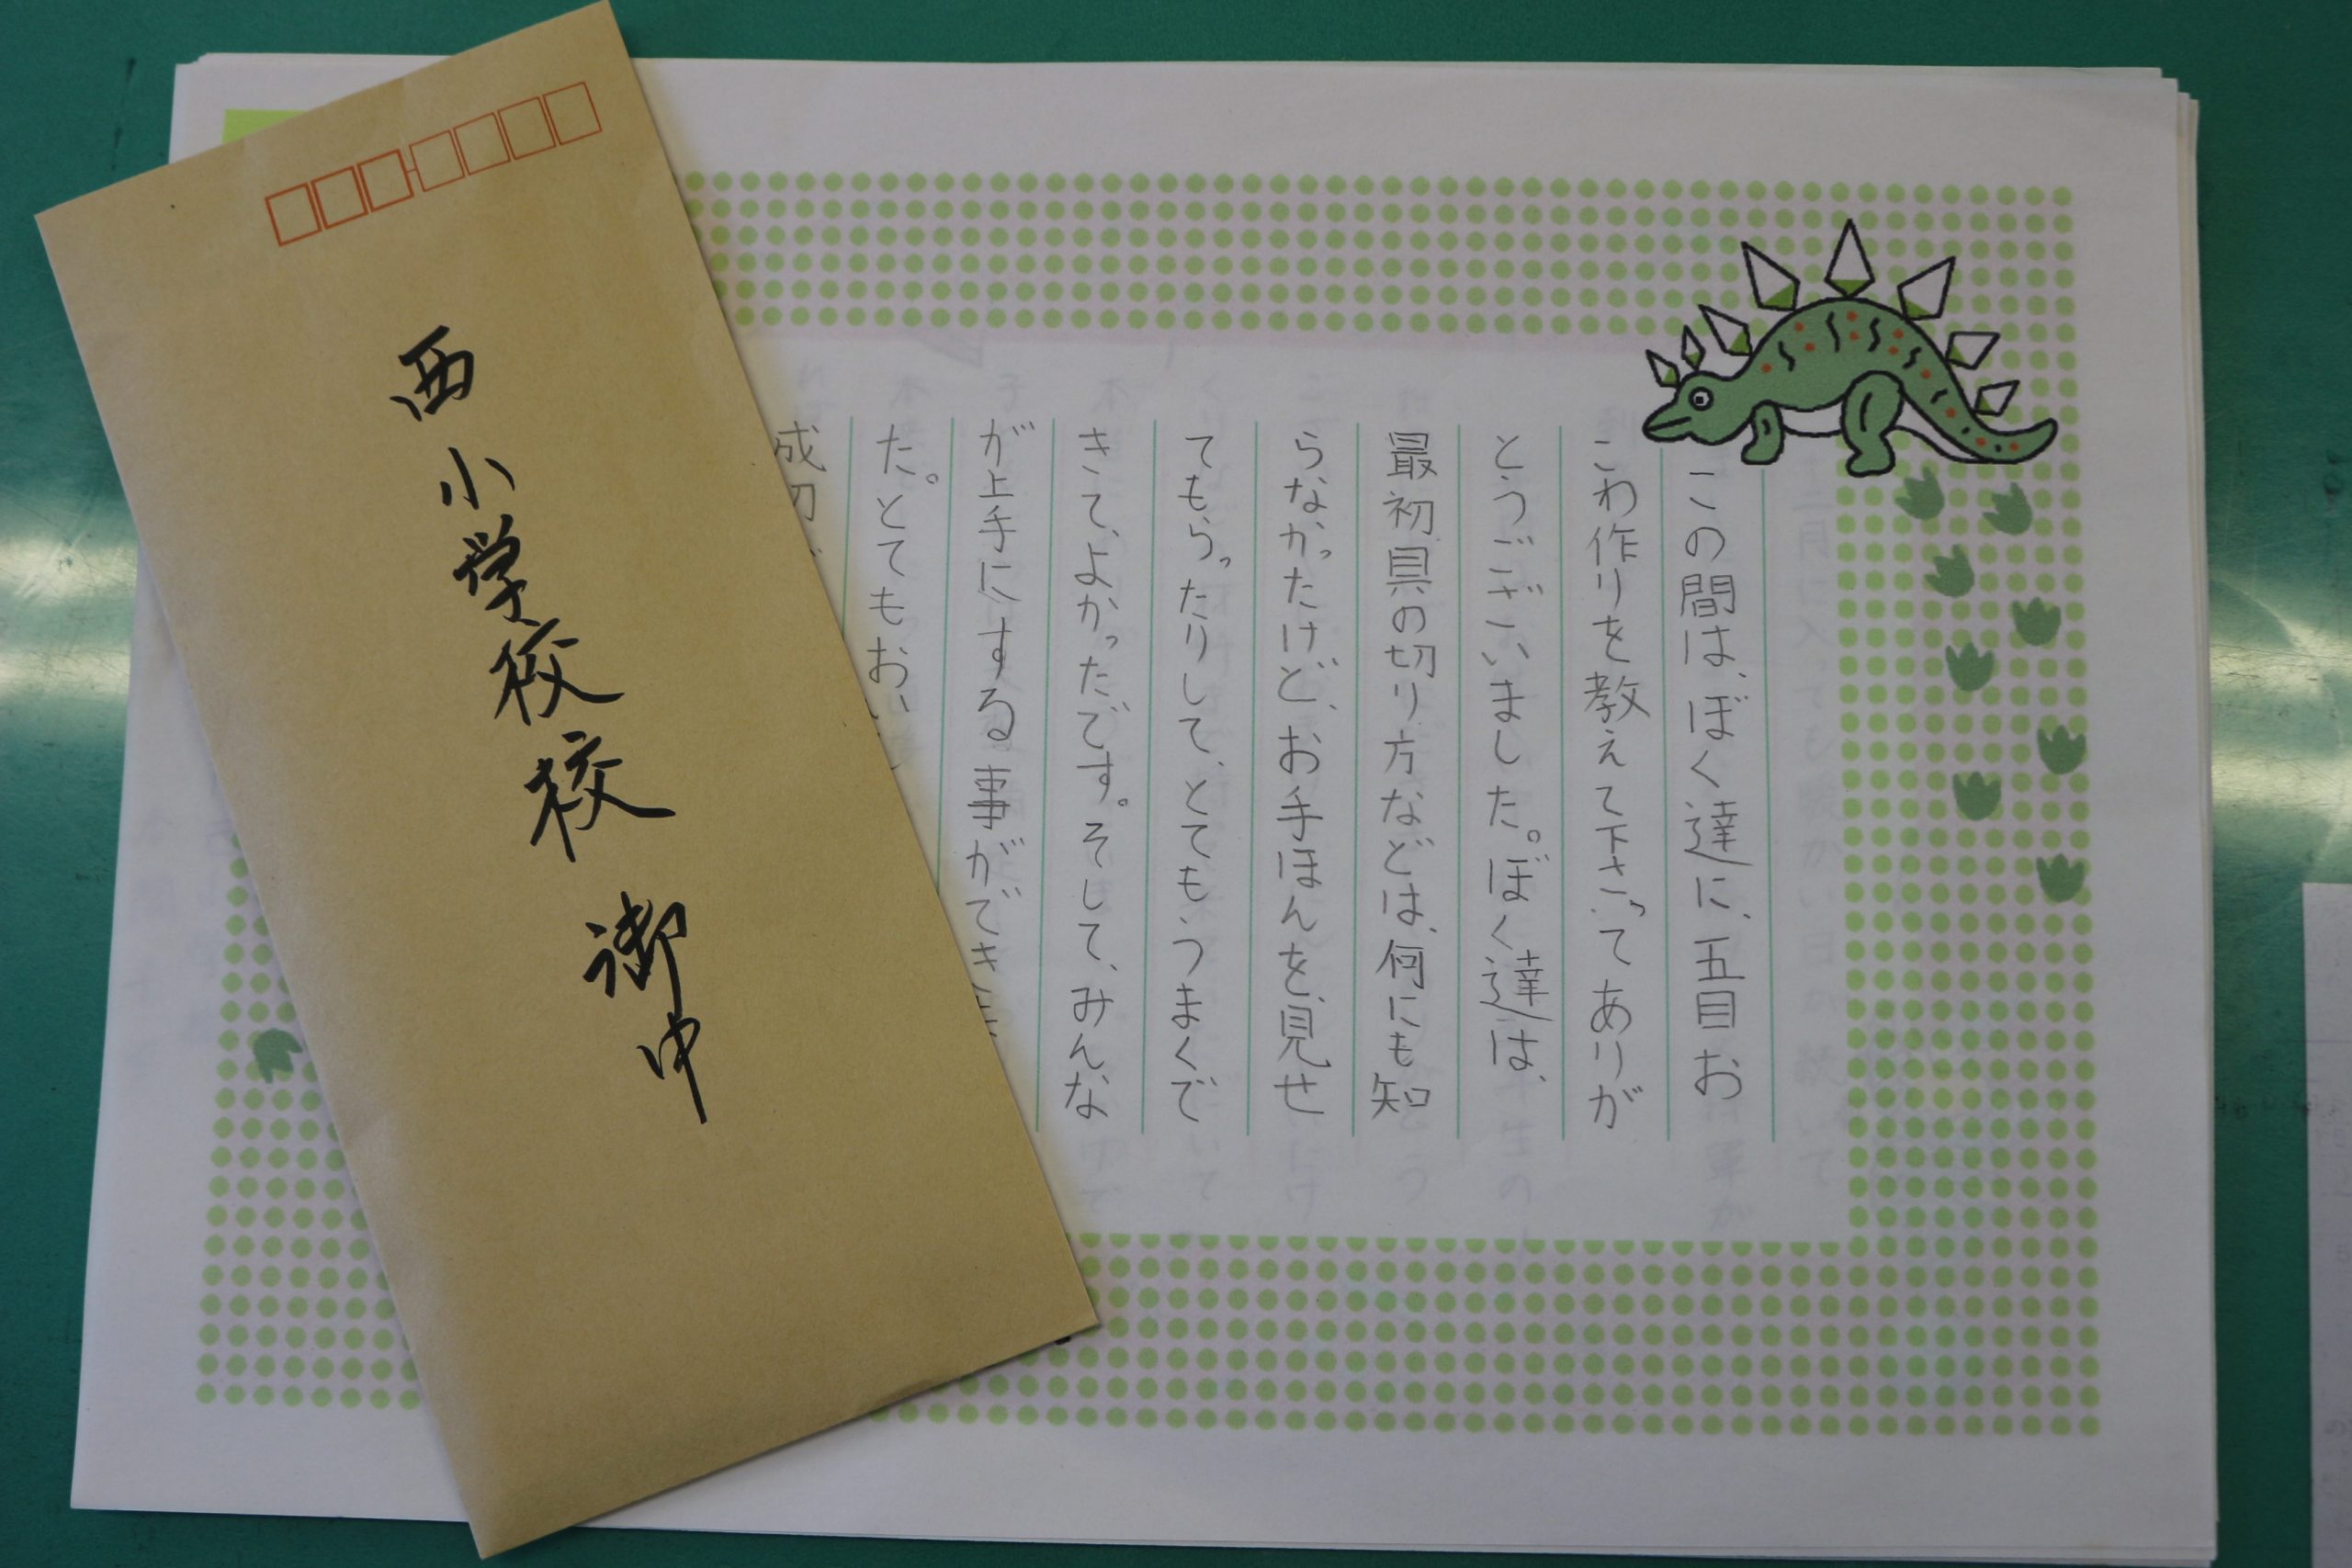 西小学校校御中
この間は、ぼく達に、五目お
こわ作りを教えて下さってありが
とうございました。ぼく達は、
最初具の切り方などは、何にも知
らなかったけど、お手ほんを、見せ
てもらったりして、とてもうまくで
きて、よかったです。そして、みんな
が上手にする事ができま
た。とてもおい
成功